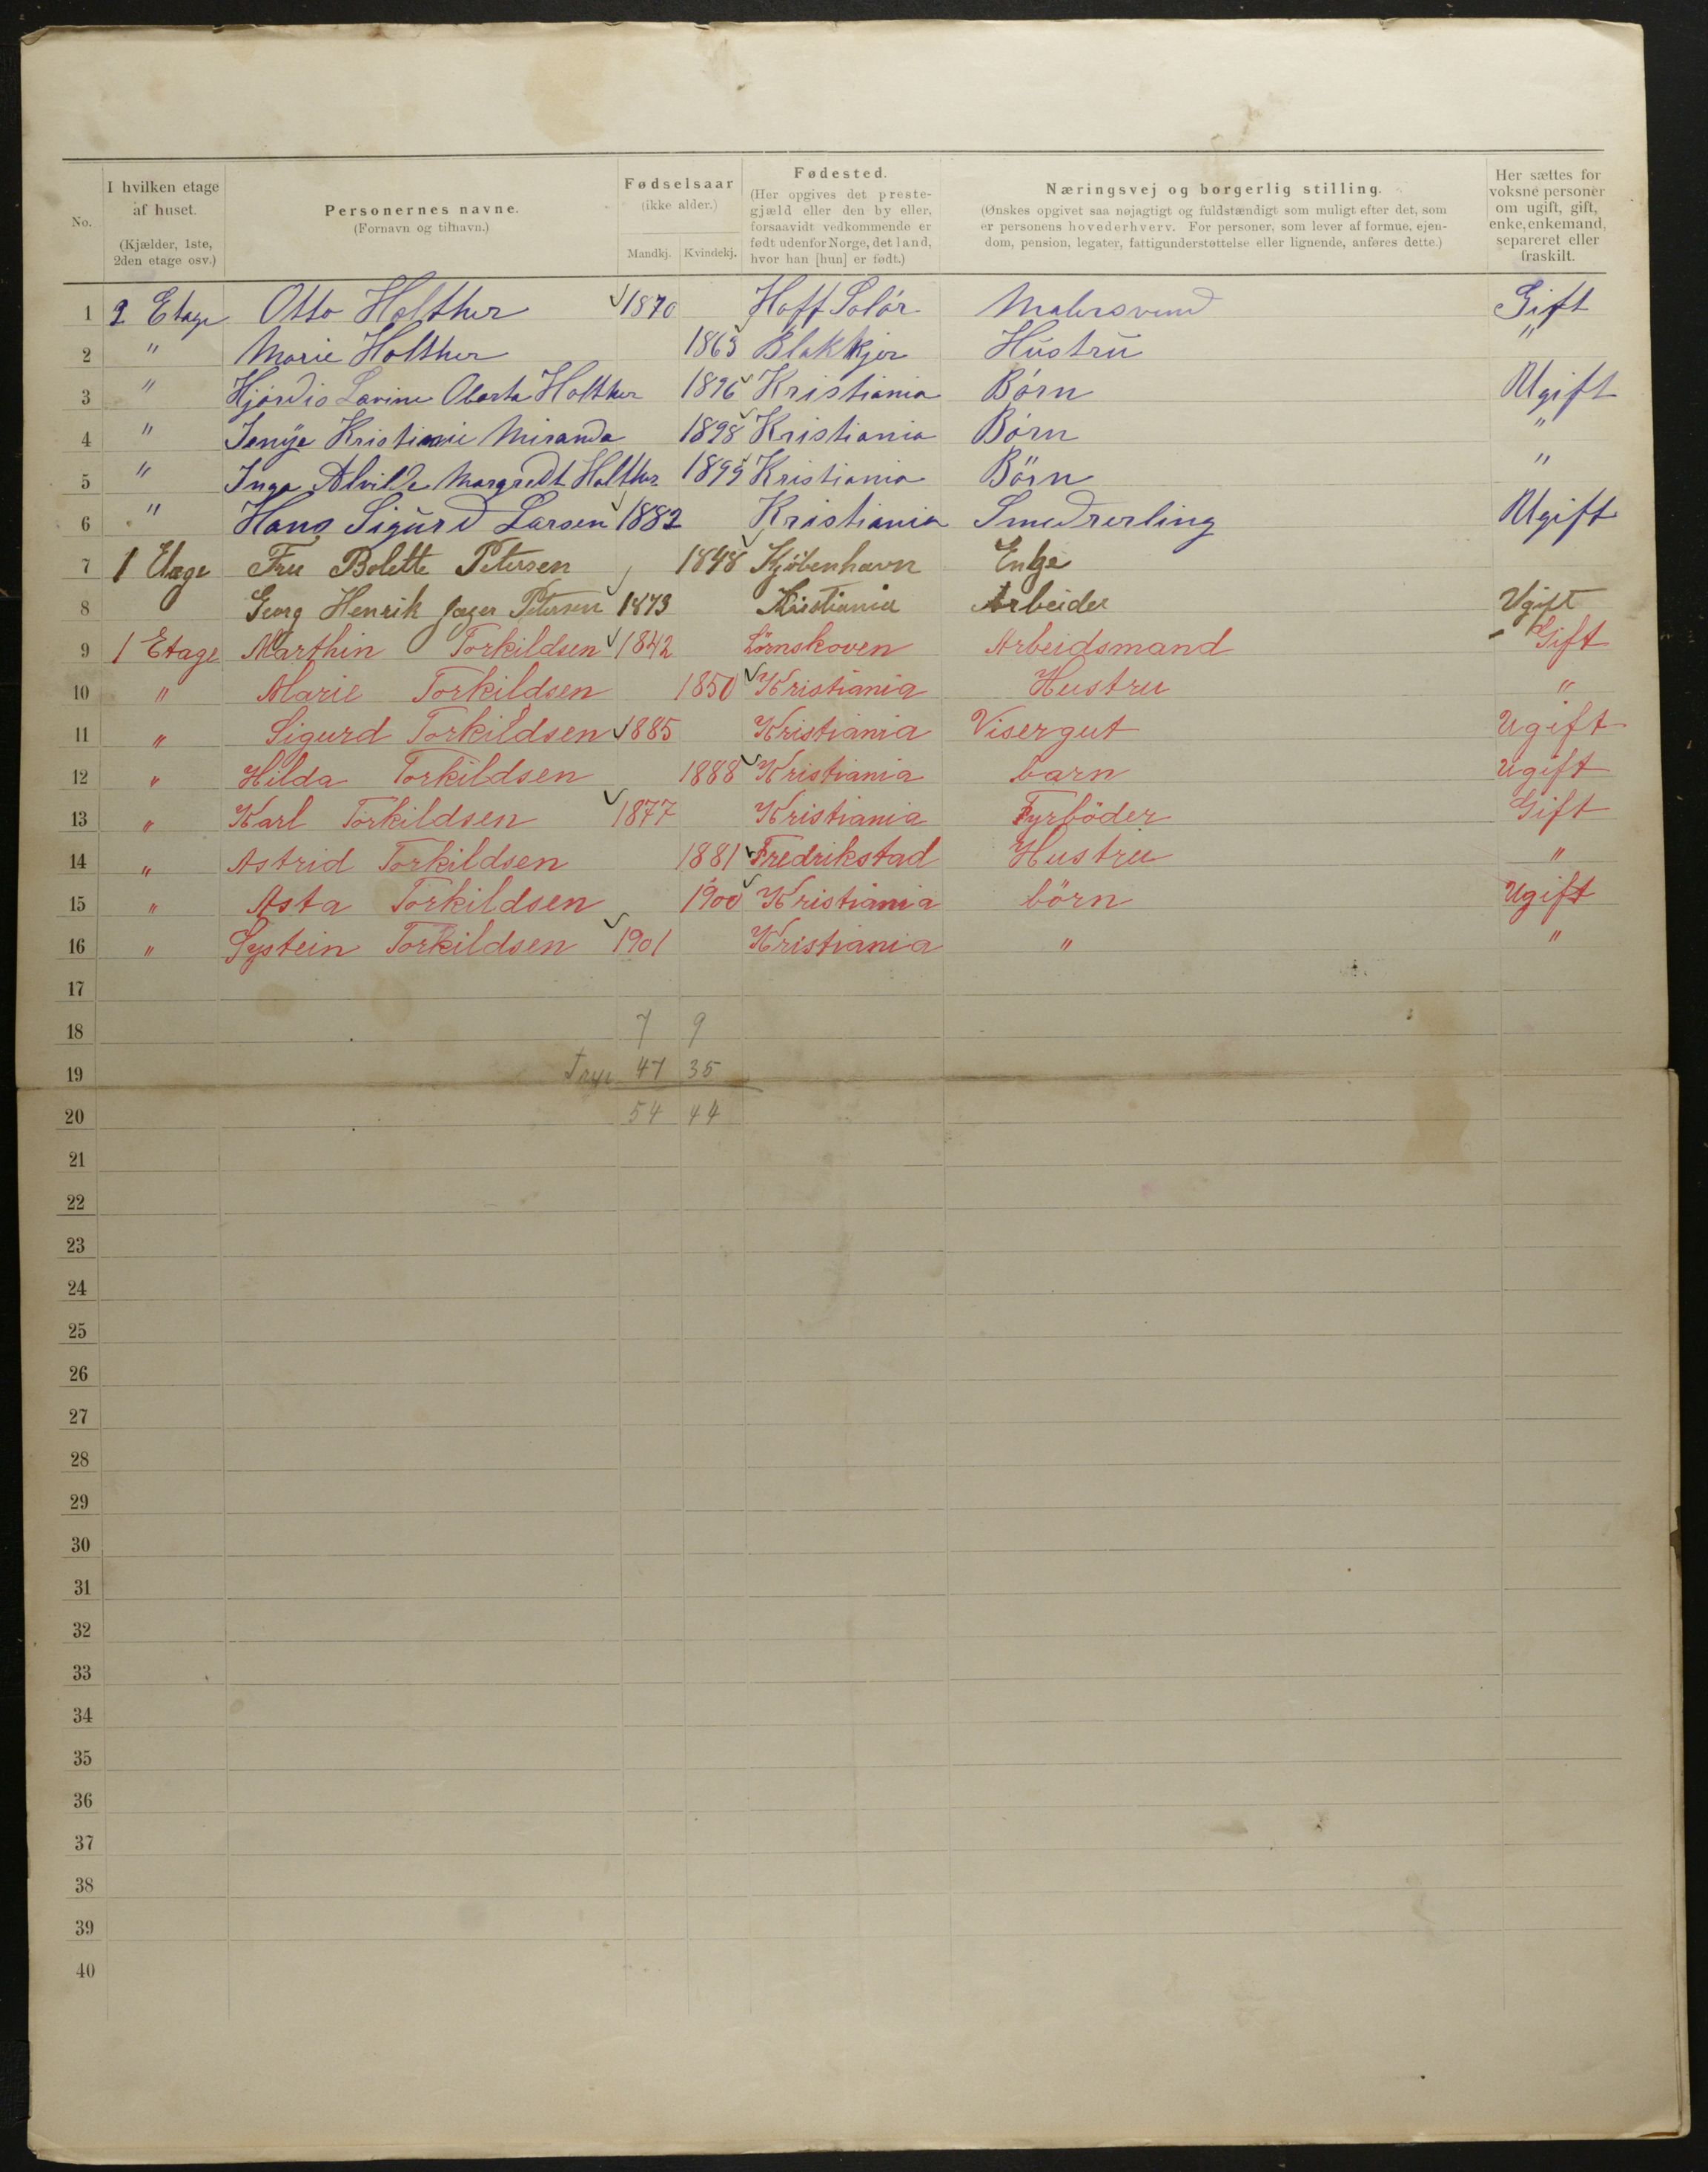 No.
I hvilken etage af huset. (Kjælder, 1ste, 2den etage osv.)
Personernes navne. (Fornavn og tilnavn.)
Fødselsaar (ikke alder.) Mandkj. Kvindekj.
Fødested. (Her opgives det prestegjæld eller den by eller, forsaavidt vedkommende er født udenfor Norge, det land, hvor han [hun] er født.)
Næringsvej og borgerlig stilling. (Ønskes opgivet saa nøjagtigt og fuldstændigt som muligt efter det, som er personens hovederhverv. For personer, som lever af formue, ejendom, pension, legater, fattigunderstøttelse eller lignende, anføres dette.)
Her sættes for voksne personer om ugift, gift, enke, enkemand, separeret eller fraskilt.
1 2 Etage Otto Holther 1870 Hoff Solør Malersvend Gift
2 " Marie Holther 1863 Blakkjer Hustru "
3 " Hjørdis Lavine Holther 1896 Kristiania Børn Ugift
4 " Jenye Kristianie Miranda 1898 Kristiania Børn "
5 " Inga Alvilde Margredt Holther 1899 Kristiania Börn "
6 " Hans Sigurd Larsen 1882 Kristiania Ugift
7 1 Etage Fru Bolette Petersen 1848 Kjöbenhavn Enke
8 Georg Henrik Jæger Petersen 1873 Kristiania Arbeider Ugift
9 1 Etage Marthin Torkildsen 1842 Lørnskoven Arbeidsmand Gift
10 " Marie Torkildsen 1850 Kristiania Hustru "
11 " Sigurd Torkildsen 1885 Kristiania Visergut Ugift
12 " Hilda Torkildsen 1888 Kristiania barn Ugift
13 " Karl Torkildsen 1877 Kristiania Fyrböder Gift
14 " Astrid Torkildsen 1881 Fredrikstad Hustru "
15 " Asta Torkildsen 1900 Kristiania börn Ugift
16 " Systein Torkildsen 1901 Kristiania " "
17
18 7 9
19 47 35
20 54 44
21
22
23
24
25
26
27
28
29
30
31
32
33
34
35
36
37
38
39
40